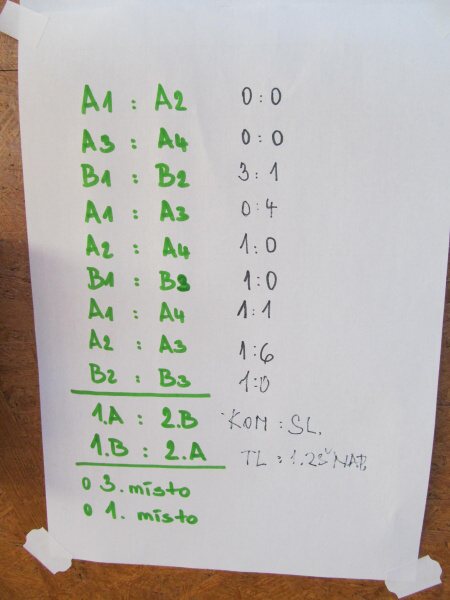 A1 : A2 0:0
A3 : A4 0:0
B1 : B2 3:1
A1 : A3 0:4
A2 : A4 1:0
B1 : B3 1:0
A1 : A4 1:1
A2 : A3 1:6
B2 : B3 1:0
1.A : 2.B KOM : SL.
1.B : 2.A TL :
o 3. místo
o 1. místo